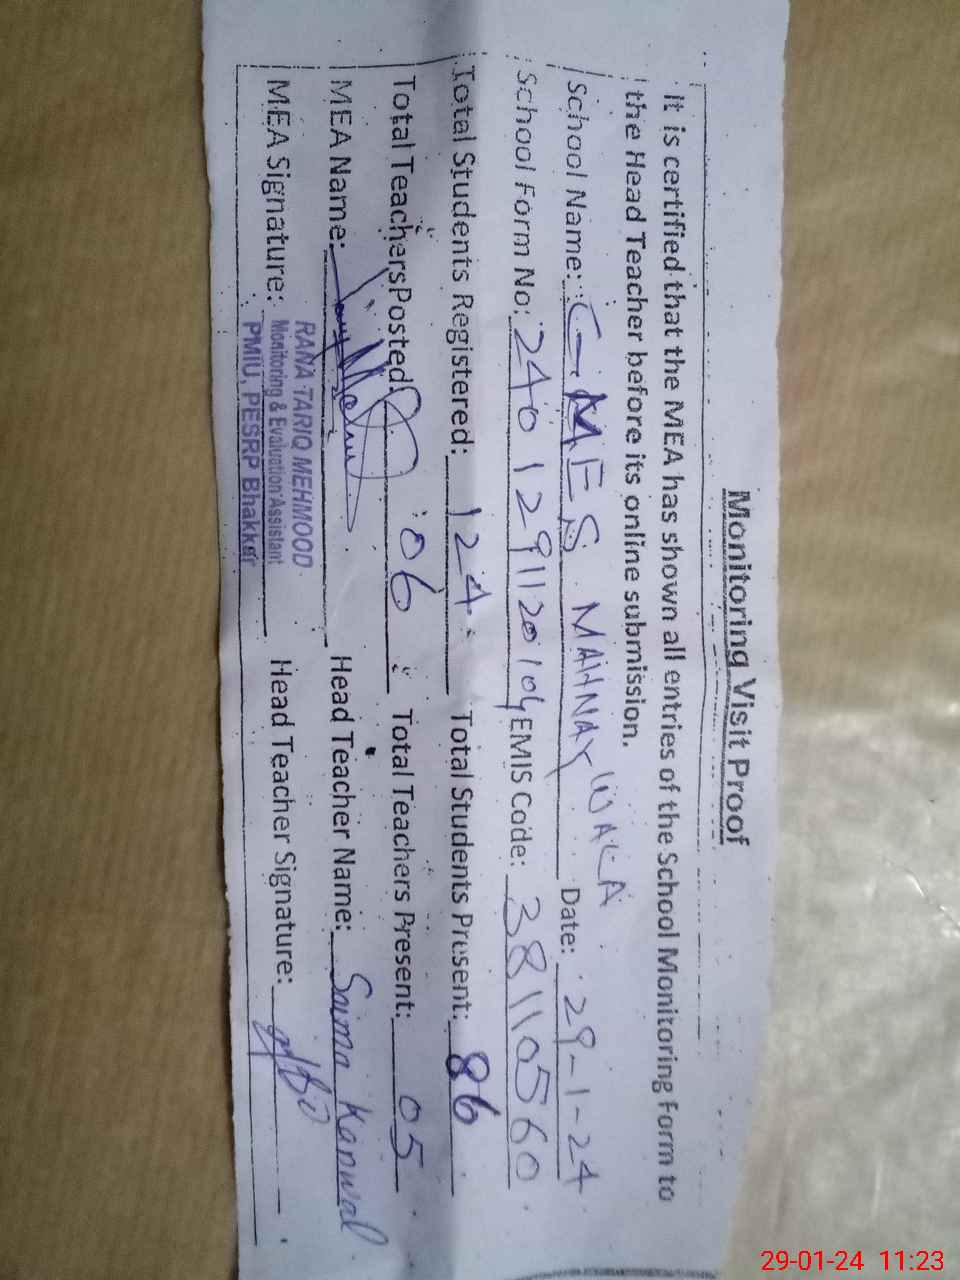 Monitoring Visit Proof
It is certified that the MEA has shown all entries of the School Monitoring Form to
the Head Teacher before its online submission.
School Name: G-MES MAHNAY WALA Date: 29-1-24
School Form No: 2401291120104 EMIS Code: 38110560
Total Students Registered: 124 Total Students Present: 86
Total Teachers Posted: 06 Total Teachers Present: 05
MEA Name: Head Teacher Name: Saima Kanwal
MEA Signature: Head Teacher Signature:
RANA TARIQ MEHMOOD
Monitoring & Evaluation Assistant
PMIU, PESRP Bhakkar
29-01-24 11:23